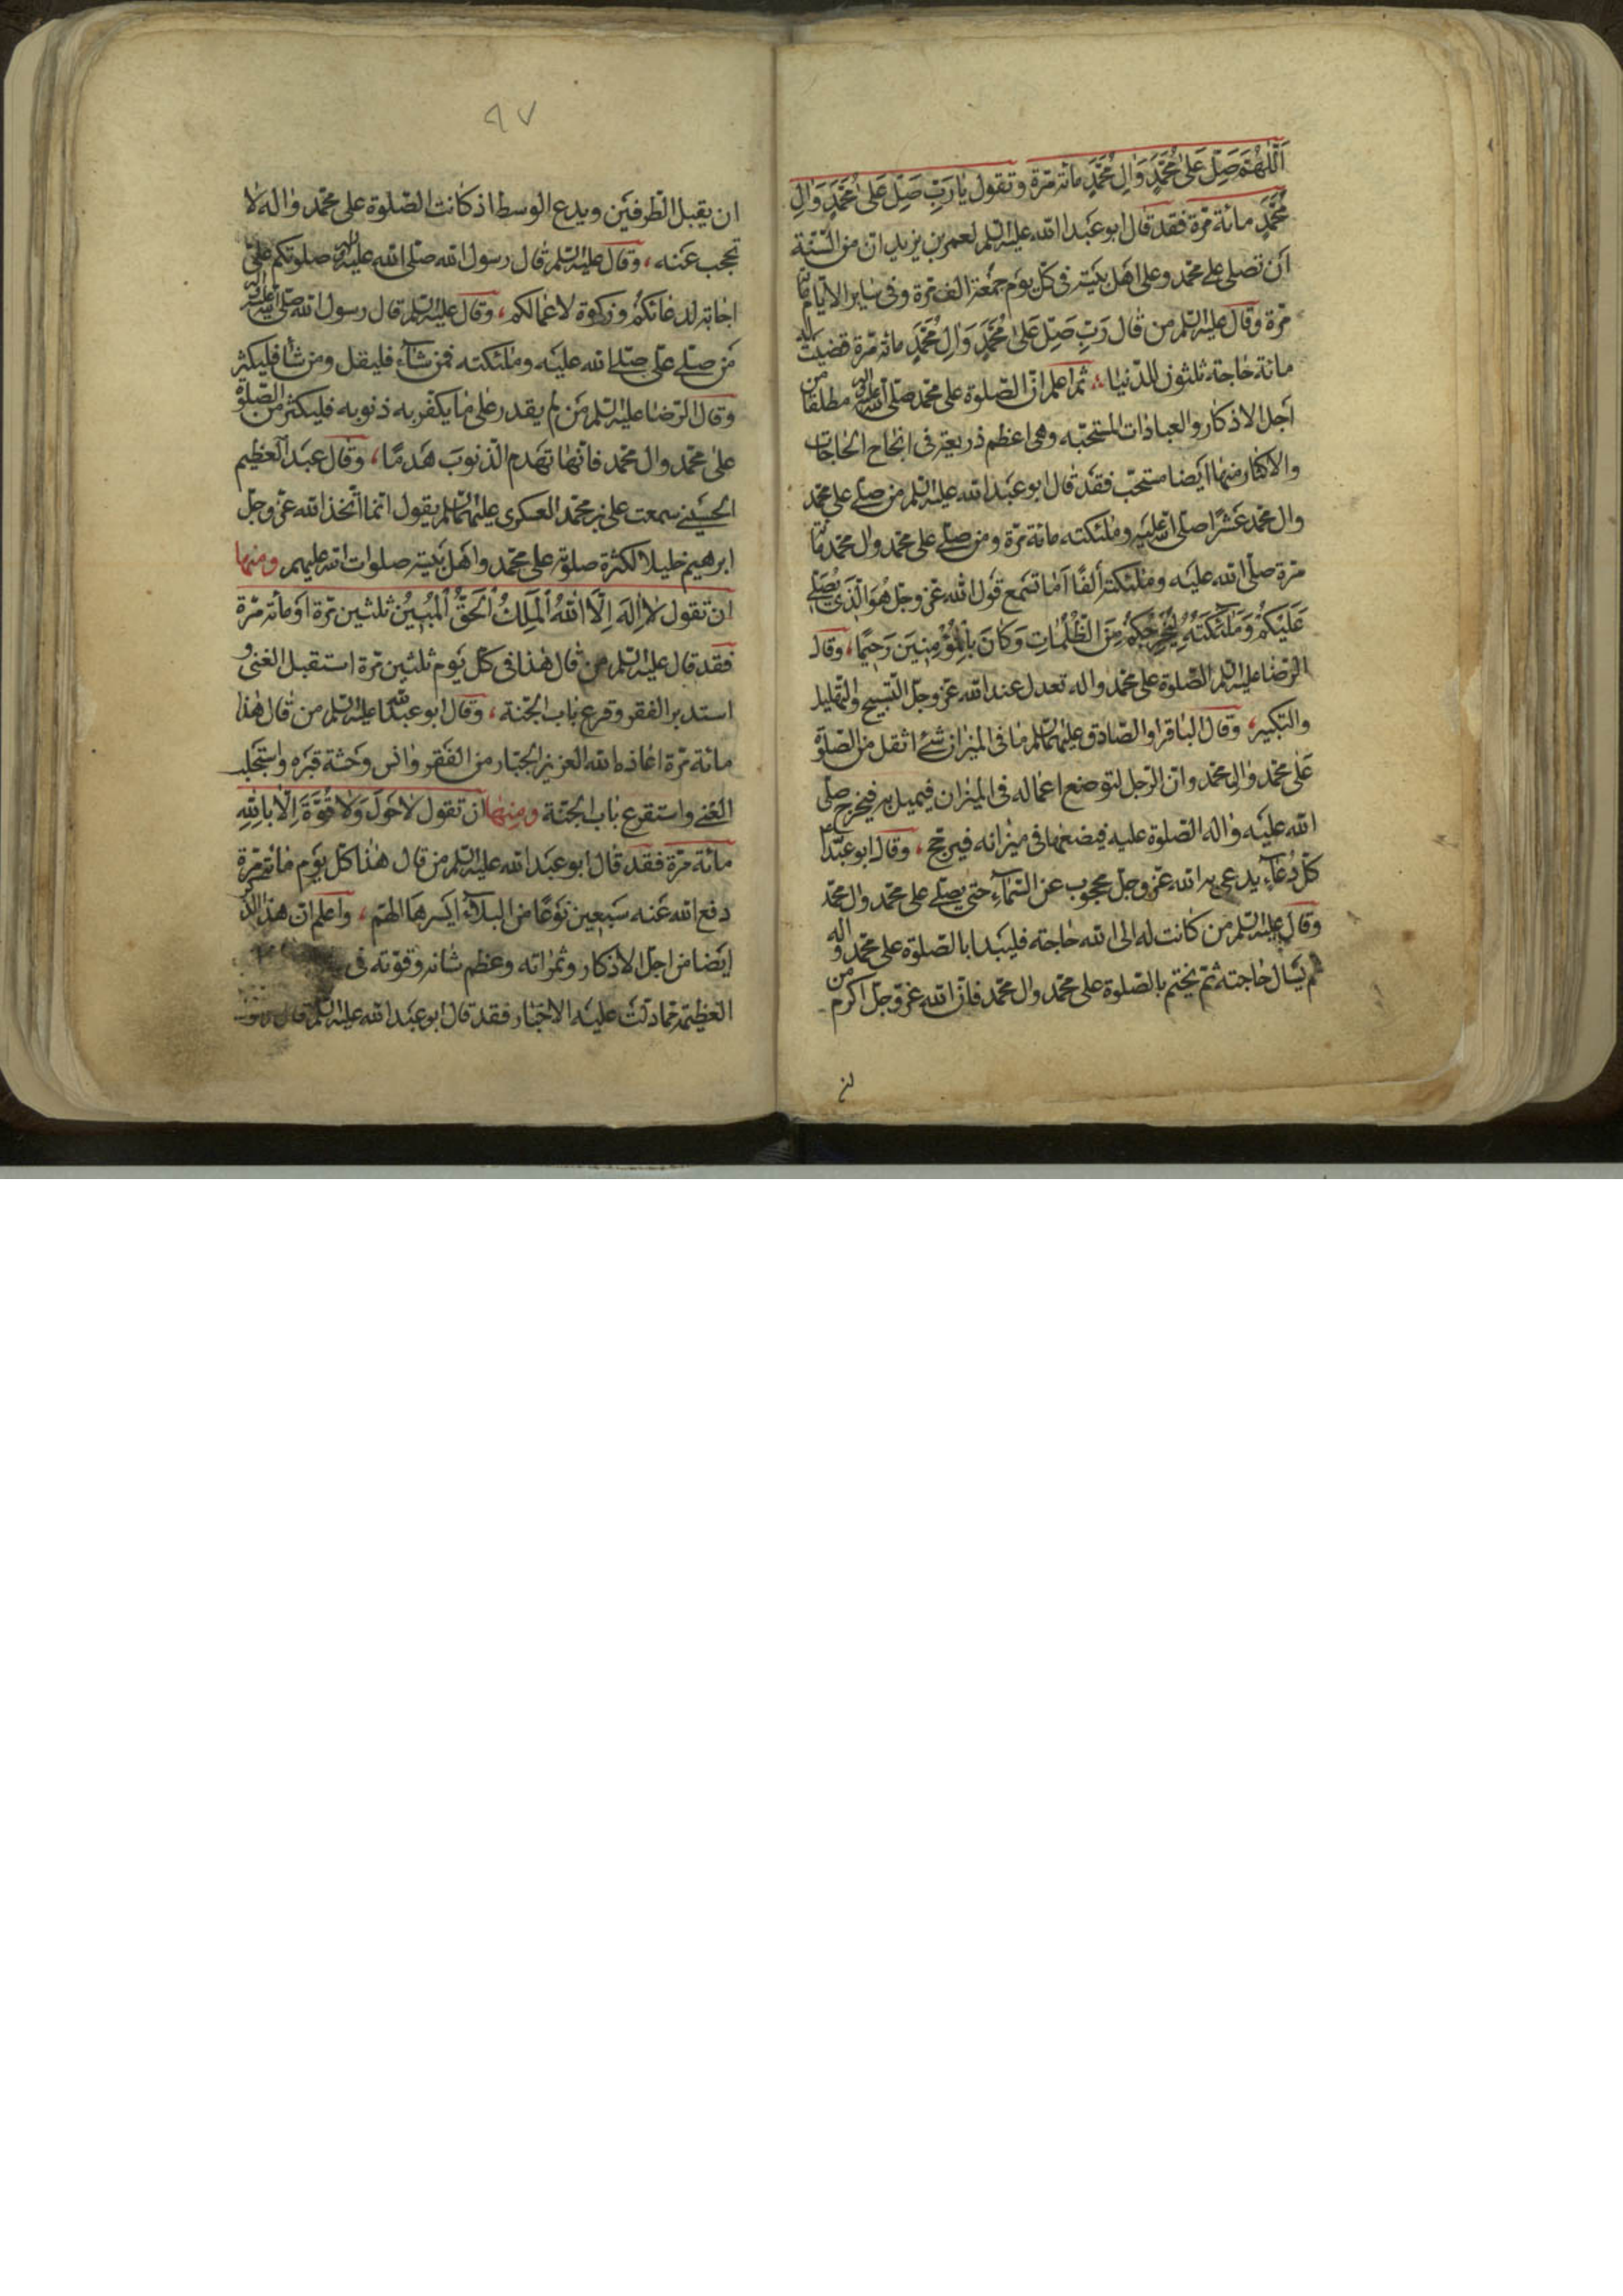 اَللّٰهُمَّ صَلِّ عَلىٰ مُحَمَّدٍ وَاٰلِ مُحَمَّدٍ مائة مرّة وتقول يٰا رَبِّ صَلِّ عَلىٰ مُحَمَّدٍ وَاٰلِ
مُحَمَّدٍ مائة مرّة فقد قال ابو عبد الله عليه السلم لعمر بن يزيد ان من السّنة
ان تصلى على محمّد وعلى اهل بيته فى كلّ يوم جمعة الف مرة وفى ساير الايام مائة
مرّة وقال عليه السلم من قال رَبِّ صَلِّ عَلىٰ مُحَمَّدٍ وَاٰلِ مُحَمَّدٍ مائة مرّة قضيت له
مائة حاجة ثلثون للدّنيا، ثم اعلم انّ الصّلوة على محمّد صلى الله عليه واله مطلقا من
اجل الاذكار والعبادات المستحبّه وهى اعظم ذريعة فى انجاح الحاجات
والاكثار منها ايضا مستحبّ فقد قال ابو عبد الله عليه السلم من صلّى على محمّد
وال محمّد عشرًا صلى الله عليه وملئكته مائة مرّة ومن صلّى على محمّد وال محمّد مائة
مرّة صلّى الله عليه وملئكته ألفًا اما تسمع قول الله عزّ وجلّ هُوَ الَّذى يُصَلّى
عَلَيْكُمْ وَمَلٰئِكَتُهُ لِيُخْرِجَكُمْ مِنَ الظُّلُمٰاتِ وَكٰانَ بِالْمُؤْمِنينَ رَحيمًا، وقال
الرّضا عليه السلم الصّلوة على محمّد واله تعدل عند الله عزّ وجلّ التّسبيح والتّهليل
والتّكبير، وقال الباقر او الصّادق عليهما السلم ما فى الميزان شئ اثقل من الصلوة
على محمّد وال محمّد وانّ الرّجل لتوضع اعماله فى الميزان فيميل به فيخرج صلى
الله عليه واله الصّلوة عليه فيضعها فى ميزانه فيرجح، وقال ابو عبد الله
كلّ دُعاء يدعى به الله عزّ وجلّ محجوب عن السّمآء حتى يصلّى على محمّد وال محمّد
وقال عليه السلم من كانت له الى الله حاجة فليبدا بالصّلوة على محمّد واله
ثم يسال حاجته ثم يختم بالصّلوة على محمّد وال محمّد فانّ الله عزّ وجلّ اكرم من
ان
٩٧
ان يقبل الطّرفين ويدع الوسط اذ كانت الصّلوة على محمّد واله لا
تحجب عنه، وقال عليه السلم قال رسول الله صلّى الله عليه واله صلوتكم علىّ
اجابة لدعائكم وزكوة لاعمالكم، وقال عليه السلم قال رسول الله صلى الله عليه واله
من صلّى علىّ صلّى الله عليه وملئكته فمن شآء فليقل ومن شآء فليكثر
وقال الرّضا عليه السلم من لم يقدر على ما يكفر به ذنوبه فليكثر من الصّلوة
على محمّد وال محمّد فانّها تهدم الذّنوب هدمًا، وقال عبد العظيم
الحسنى سمعت على بن محمّد العسكرى عليهما السلم يقول انما اتّخذ الله عزّ وجلّ
ابرهيم خليلا لكثرة صلوته على محمّد واهل بيته صلوات الله عليهم ومنها
ان تقول لٰا اِلٰهَ اِلَّا اللهُ الْمَلِكُ الْحَقُّ الْمُبينُ ثلثين مرّة او مائة مرّة
فقد قال عليه السلم من قال هذا فى كلّ يوم ثلثين مرّة استقبل الغنى و
استدبر الفقر وقرع باب الجنة، وقال ابو عبد الله عليه السلم من قال هذا
مائة مرّة اعاذه الله العزيز الجبّار من الفقر وانس وحشة قبره واستجلب
الغنى واستقرع باب الجنّة ومنها ان تقول لٰا حَوْلَ وَلٰا قُوَّةَ اِلّٰا بِاللهِ
مائة مرّة فقد قال ابو عبد الله عليه السلم من قال هذا كلّ يوم مائة مرّة
دفع الله عنه سبعين نوعًا من البلآء ايسرها الهمّ، واعلم ان هذا الذكر
ايضا من اجلّ الاذكار وثمراته وعظم شانه وقوّته فى
العظيمة مما دلّت عليه الاخبار فقد قال ابو عبد الله عليه السلم قال رسول